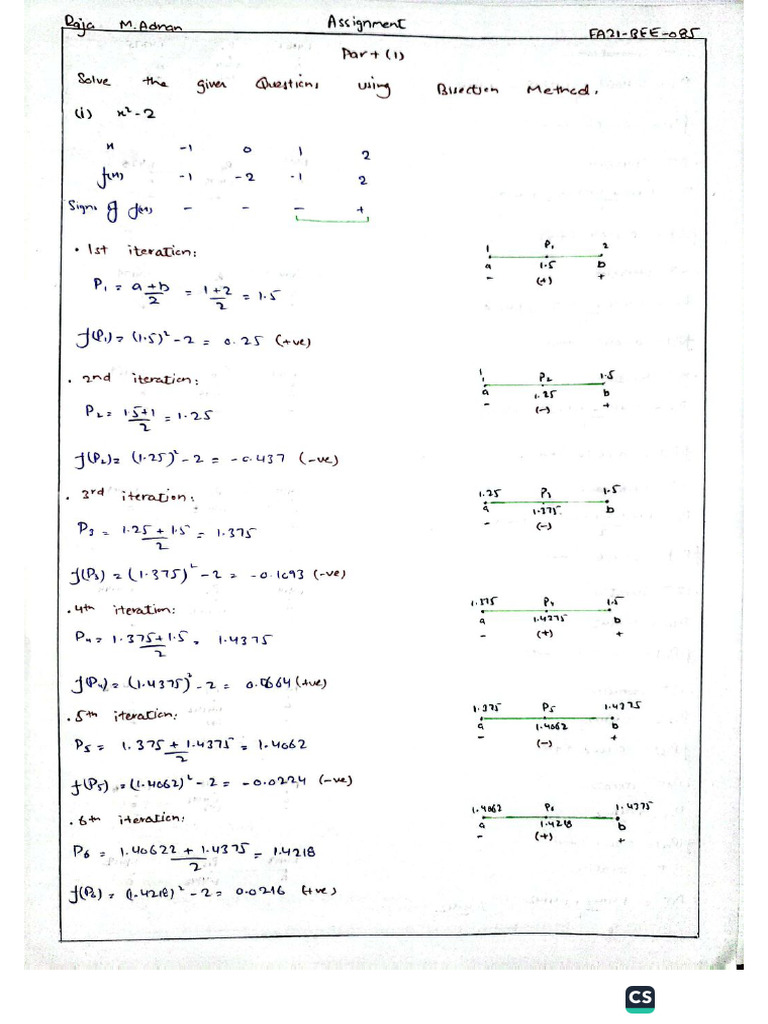 Raja M. Adnan Assignment FA21-BEE-085
Part (1)
Solve the given Questions using Bisection Method.
(i) x²-2
x -1 0 1 2
f(x) -1 -2 -1 2
Sign. of f(x) - - - +
. 1st iteration:
P₁ = a+b/2 = 1+2/2 = 1.5
f(P₁) = (1.5)² - 2 = 0.25 (+ve)
1 P₁ 2
a 1.5 b
- (+) +
. 2nd iteration:
P₂ = 1.5+1/2 = 1.25
f(P₂) = (1.25)² - 2 = -0.437 (-ve)
1 P₂ 1.5
a 1.25 b
- (-) +
. 3rd iteration:
P₃ = 1.25 + 1.5/2 = 1.375
f(P₃) = (1.375)² - 2 = -0.1093 (-ve)
1.25 P₃ 1.5
a 1.375 b
- (-)
. 4th iteration:
P₄ = 1.375+1.5/2 = 1.4375
f(P₄) = (1.4375)² - 2 = 0.0664 (+ve)
1.375 P₄ 1.5
a 1.4375 b
- (+) +
. 5th iteration:
P₅ = 1.375 + 1.4375/2 = 1.4062
f(P₅) = (1.4062)² - 2 = -0.0224 (-ve)
1.375 P₅ 1.4375
a 1.4062 b
- (-) +
. 6th iteration:
P₆ = 1.40622 + 1.4375/2 = 1.4218
f(P₆) = (1.4218)² - 2 = 0.0216 (+ve)
1.4062 P₆ 1.4375
a 1.4218 b
- (+) +
CS